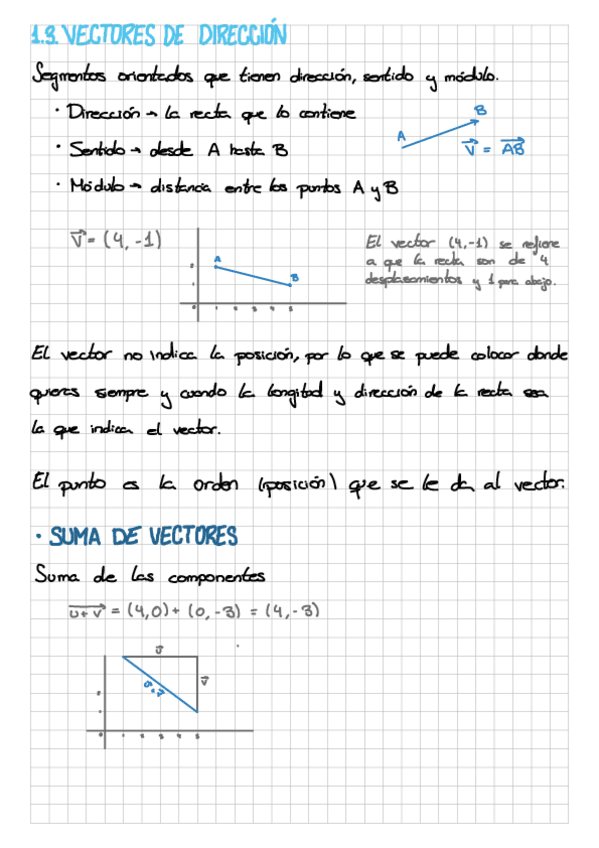 1.3. VECTORES DE DIRECCIÓN
Segmentos orientados que tienen dirección, sentido y módulo.
· Dirección → la recta que lo contiene
· Sentido → desde A hasta B
· Módulo → distancia entre los puntos A y B
A B
V⃗ = AB⃗
V⃗ = (4, -1)
A
B
1 2 3 4 5
El vector (4,-1) se refiere
a que la recta son de 4
desplasamientos y 1 para abajo.
El vector no indica la posición, por lo que se puede colocar donde
quieras siempre y cuando la longitud y dirección de la recta sea
la que indica el vector.
El punto es la orden (posición) que se le da al vector.
· SUMA DE VECTORES
Suma de las componentes
u+v⃗ = (4,0) + (0,-3) = (4,-3)
u⃗
v⃗
u+v⃗
0 1 2 3 4 5